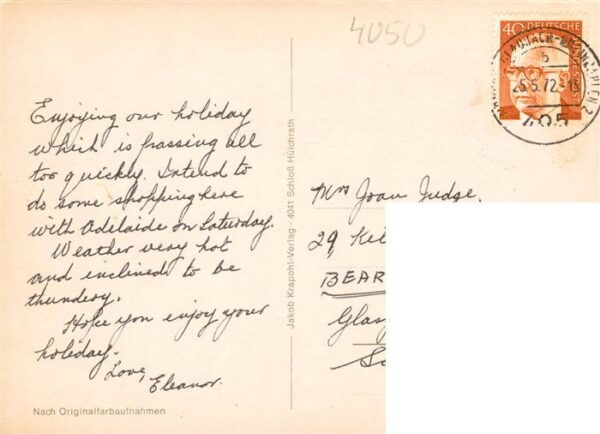 4050
40 DEUTSCHE
25.5.72-15
405
Enjoying our holiday
which is passing all
too quickly. Intend to
do some shopping here
with Adelaide on Saturday.
Weather very hot
and inclined to be
thundery.
Hope you enjoy your
holiday.
Love,
Eleanor.
Jakob Krapohl-Verlag · 4041 Schloß Hülchrath
Mrs Joan Judge,
29, Kil
BEAR
Glas
Nach Originalfarbaufnahmen